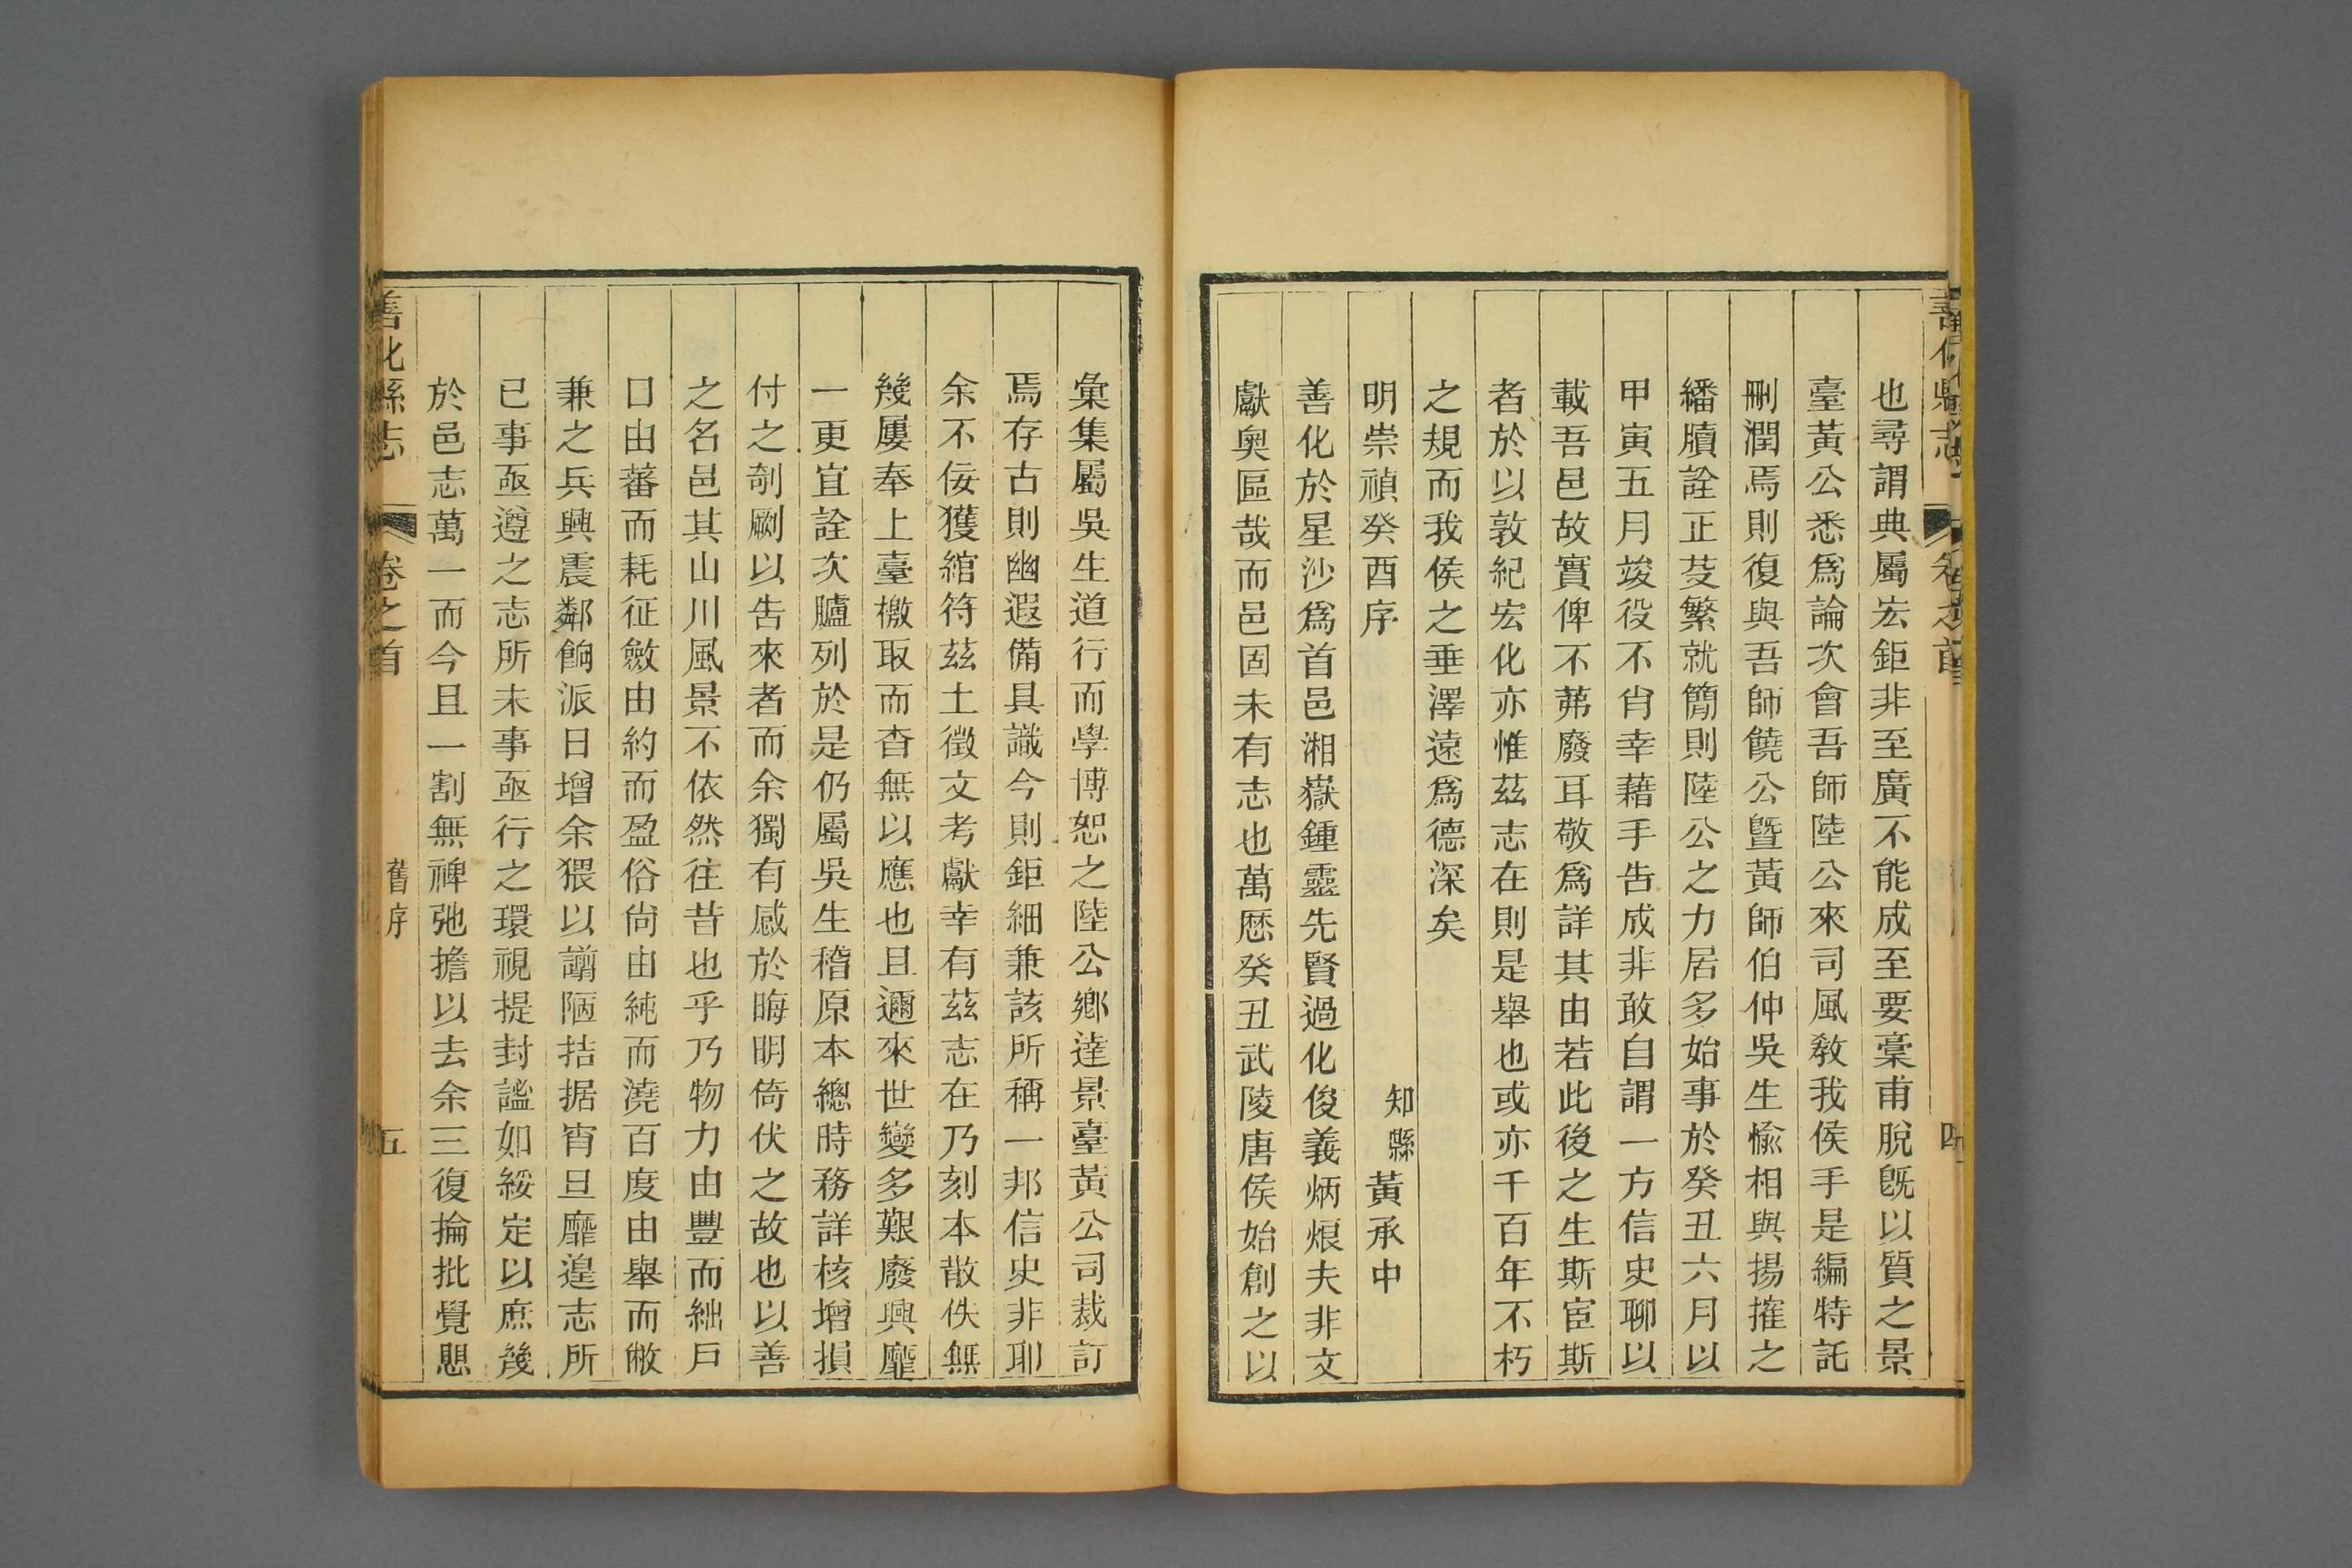 善化縣志
卷之首
四
也尋謂典屬宏鉅非至廣不能成至要稾甫脫旣以質之景
臺黃公悉爲論次會吾師陸公來司風敎我侯手是編特託
刪潤焉則復與吾師饒公曁黃師伯仲吳生愉相與揚搉之
繙牘詮正芟繁就簡則陸公之力居多始事於癸丑六月以
甲寅五月竣役不肖幸藉手告成非敢自謂一方信史聊以
載吾邑故實俾不茀廢耳敬爲詳其由若此後之生斯宦斯
者於以敦紀宏化亦惟茲志在則是舉也或亦千百年不朽
之規而我侯之垂澤遠爲德深矣
明崇禎癸酉序
知縣黃承中
善化於星沙爲首邑湘嶽鍾靈先賢過化俊義炳烺夫非文
獻奧區哉而邑固未有志也萬厯癸丑武陵唐侯始創之以
彙集屬吳生道行而學博恕之陸公鄉達景臺黃公司裁訂
焉存古則幽遐備具識今則鉅細兼該所稱一邦信史非耶
余不佞獲綰符茲土徵文考獻幸有茲志在乃刻本散佚無
幾屢奉上臺檄取而杳無以應也且邇來世變多艱廢興靡
一更宜詮次臚列於是仍屬吳生稽原本總時務詳核增損
付之剞劂以告來者而余獨有感於晦明倚伏之故也以善
之名邑其山川風景不依然往昔也乎乃物力由豐而絀戶
口由蕃而耗征斂由約而盈俗尙由純而澆百度由舉而敝
兼之兵興震鄰餉派日增余猥以譾陋拮据宵旦靡遑志所
已事亟遵之志所未事亟行之環視提封謐如綏定以庶幾
於邑志萬一而今且一割無裨弛擔以去余三復掄批覺愳
善化縣志
卷之首
舊序
五